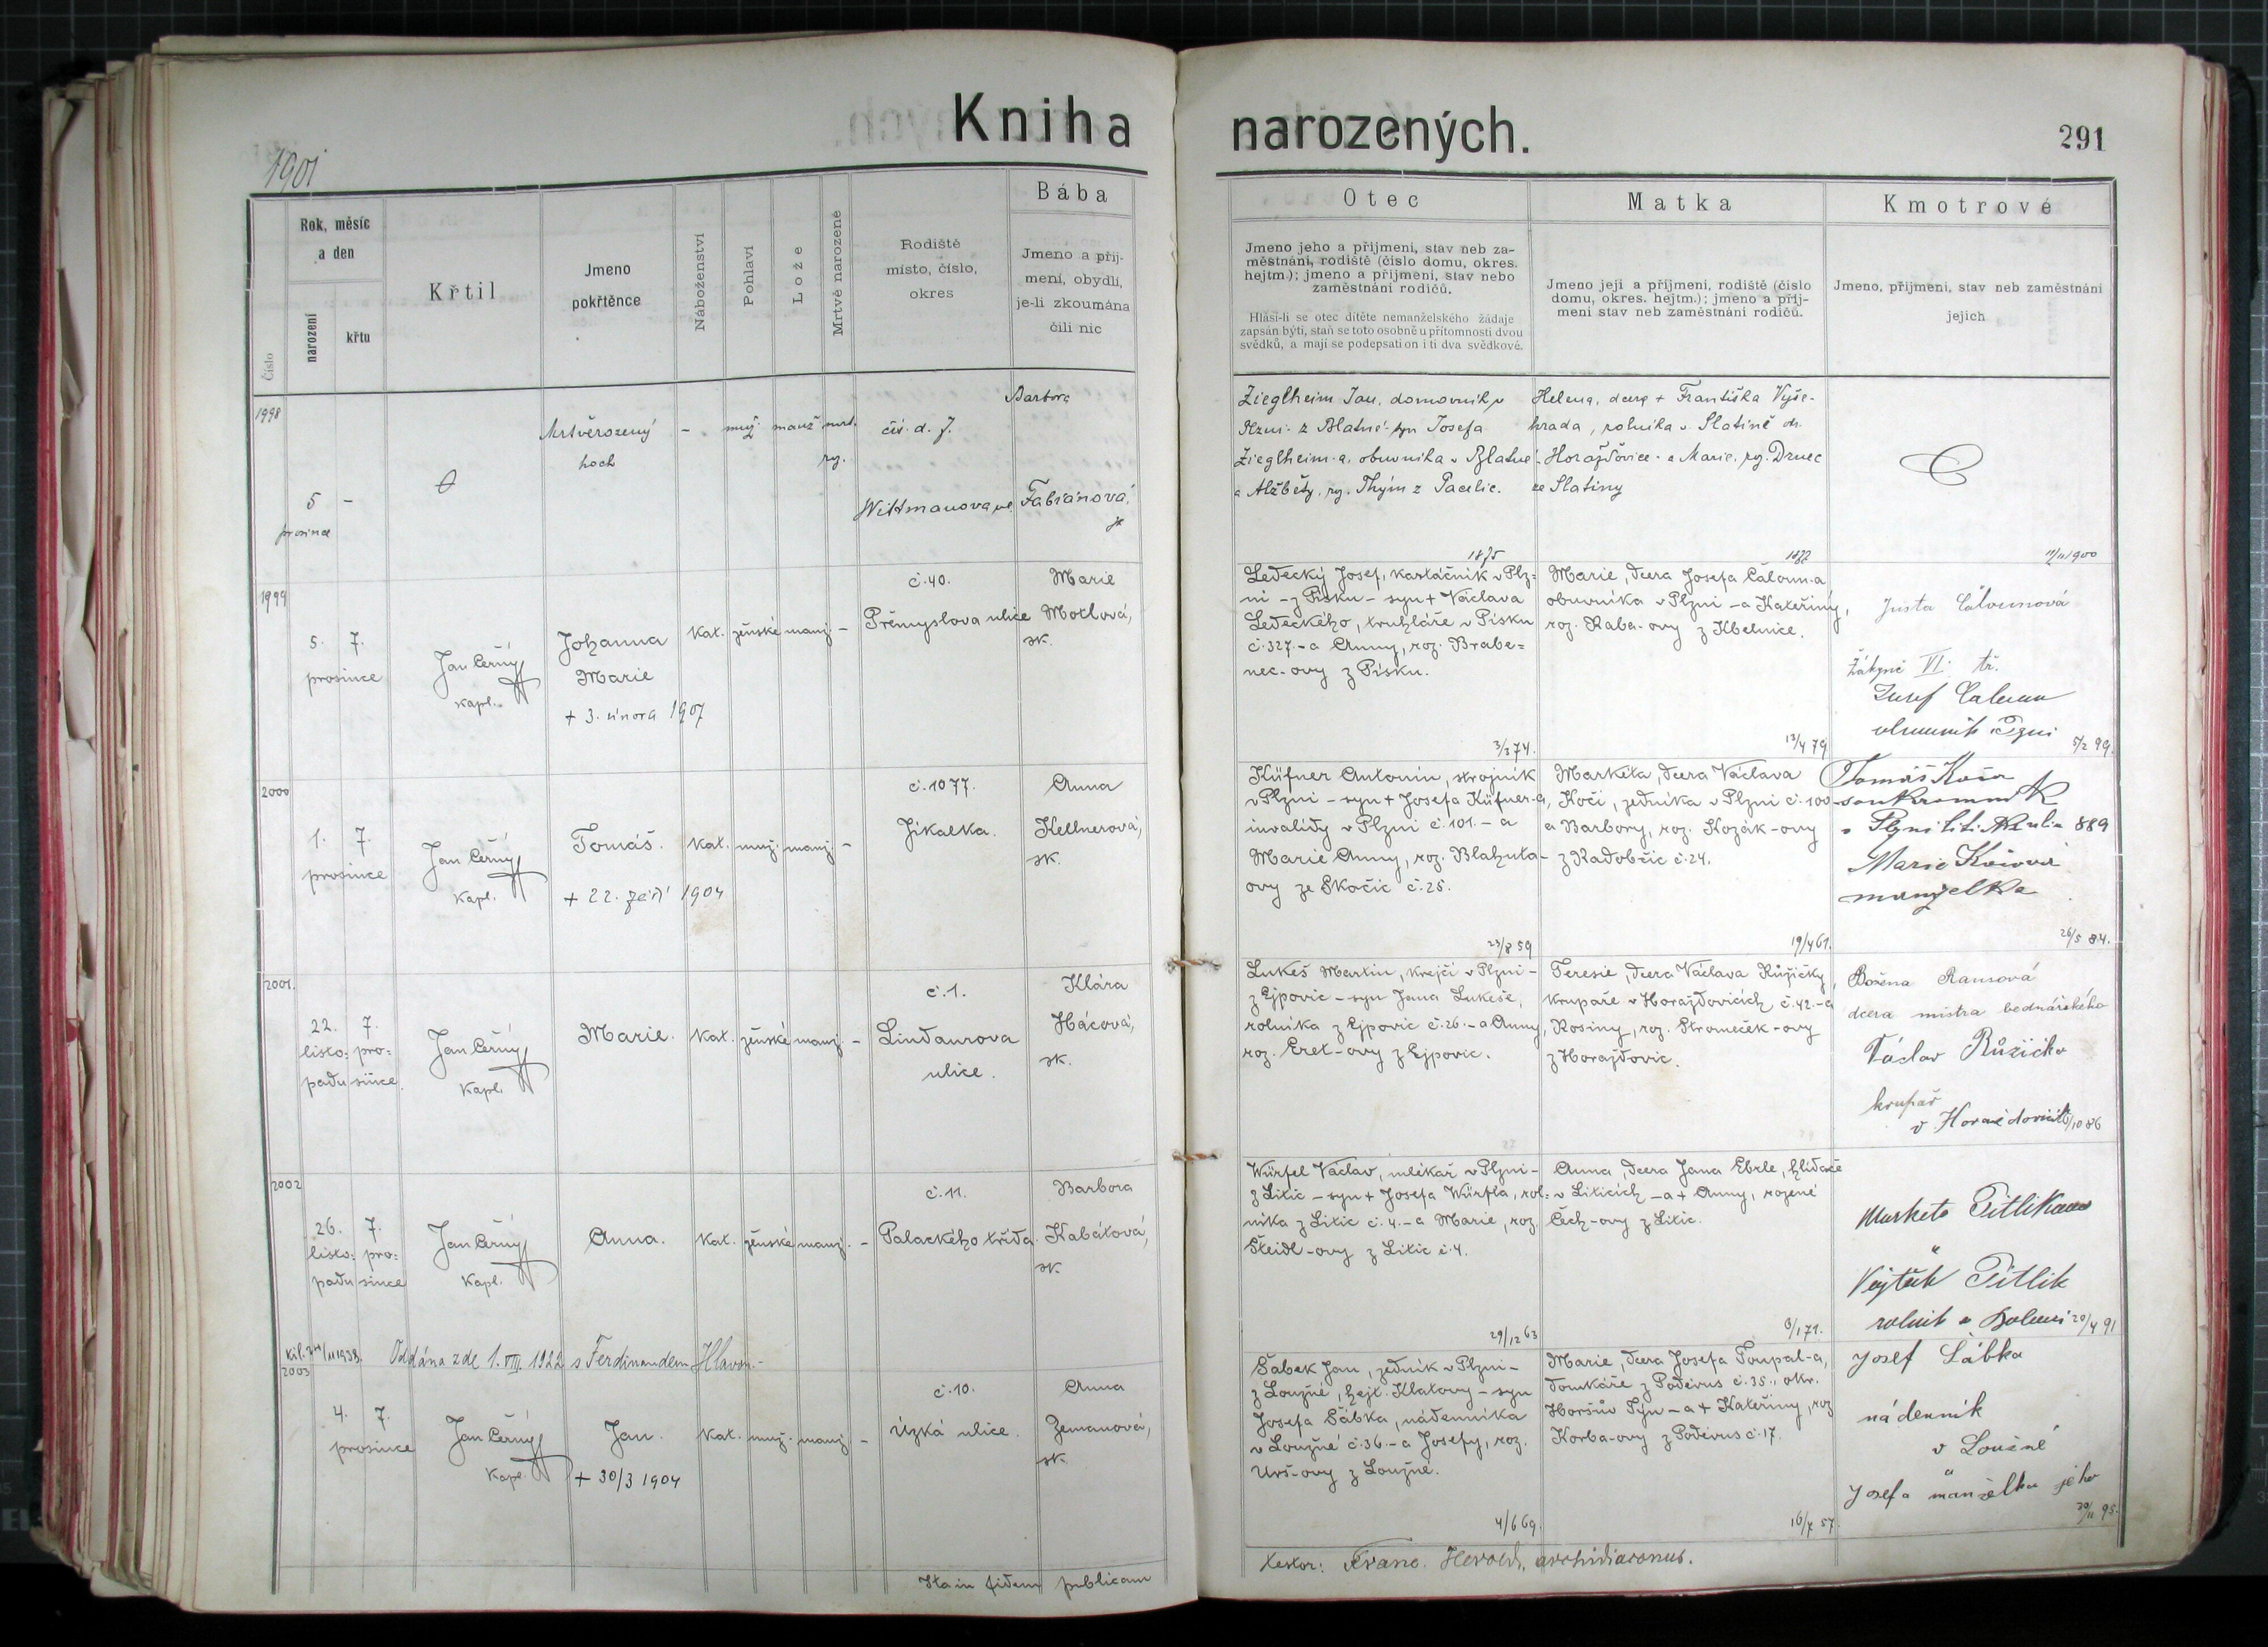 Kniha narozených.
291
1901
Číslo
Rok, měsíc
a den
narození
křtu
Křtil
Jmeno
pokřtěnce
Náboženství
Pohlaví
Lože
Mrtvě narozené
Rodiště
místo, číslo,
okres
Bába
Jmeno a příj-
mení, obydlí,
je-li zkoumána
čili nic
Otec
Jmeno jeho a příjmení, stav neb za-
městnání, rodiště (číslo domu, okres.
hejtm.); jmeno a příjmení, stav nebo
zaměstnání rodičů.
Hlásí-li se otec dítěte nemanželského žádaje
zapsán býti, staň se toto osobně u přítomnosti dvou
svědků, a mají se podepsati on i ti dva svědkové.
Matka
Jmeno její a příjmení, rodiště (číslo
domu, okres. hejtm.); jmeno a příj-
mení stav neb zaměstnání rodičů.
Kmotrové
Jmeno, příjmení, stav neb zaměstnání
jejich
1998
5 -
prosince
Mrtvěrozený
hoch
- muž. manž. mrt.
rz.
čís. d. 7.
Wittmanova ul.
Barbora
Fabiánová,
Zieglheim Jan, domovník v
Plzni - z Blatné - syn Josefa
Zieglheim-a, obuvníka v Blatné
a Alžběty, rz. Thým z Pacelic.
Helena, dcera + Františka Vyše-
hrada, rolníka v Slatině ok.
Horažďovice - a Marie, rz. Drnec
ze Slatiny
1875
1872
11/11 1900
1999
5. 7.
prosince
Jan Černý
kapl.
Johanna
Marie
+ 3. února 1907
kat. ženské manž. -
č. 40.
Přemyslova ulice
Marie
Motlová,
zk.
Ledecký Josef, kartáčník v Plz=
ni - z Písku - syn + Václava
Ledeckého, truhláře v Písku
č. 327. - a Anny, roz. Brabe=
nec-ovy z Písku.
Marie, dcera Josefa Čaloun-a
obuvníka v Plzni - a Kateřiny,
roz. Raba-ovy z Kbelnice.
Justa Čalounová
žákyně VI. tř.
Josef Čaloun
3/3 74.
13/4 79
5/2 99.
2000
1. 7.
prosince
Jan Černý
kapl.
Tomáš.
+ 22. září 1904
kat. muž. manž. -
č. 1077.
Jíkalka.
Anna
Kellnerová,
zk.
Küfner Antonín, strojník
v Plzni - syn + Josefa Küfner-a,
invalidy v Plzni č. 101. - a
Marie Anny, roz. Blahuta-
ovy ze Skočic č. 25.
Markéta, dcera Václava
Kočí, zedníka v Plzni č. 100
a Barbory, roz. Kozák-ovy
z Radobčic č. 24.
Tomáš Koša
soukromník
v Plzni 889
Marie Košová
manželka
23/8 59
19/4 61.
26/5 84.
2001.
22. 7.
listo= pro=
padu since.
Jan Černý
kapl.
Marie.
kat. ženské manž. -
č. 1.
Lindaurova
ulice.
Klára
Hácová,
zk.
Lukeš Martin, krejčí v Plzni -
z Ejpovic - syn Jana Lukeše,
rolníka z Ejpovic č. 26. - a Anny,
roz. Eret-ovy z Ejpovic.
Teresie, dcera Václava Růžičky,
krupaře v Horažďovicích č. 42. - a
Rosiny, roz. Stromeček-ovy
z Horažďovic.
Božena Rausová
dcera mistra bednářského
Václav Růžička
krupař
v Horažďovicích /10 86
2002
26. 7.
listo= pro=
padu since
Jan Černý
kapl.
Anna.
kat. ženské manž. -
č. 11.
Palackého třída.
Barbora
Kabátová,
zk.
Würfel Václav, mlékař v Plzni -
z Litic - syn + Josefa Würfla, rol=
níka z Litic č. 4. - a Marie, roz.
Šteidl-ovy z Litic č. 4.
Anna, dcera Jana Ebrle, hlídače
v Liticích - a + Anny, rozené
Čech-ovy z Litic.
Marketa Pitlíkova
Vojtěch Pitlík
29/12 63
3/1 71.
20/4 91
Oddána zde 1. VIII. 1922 s Ferdinandem Hlavou.-
2003
4. 7.
prosince
Jan Černý
kapl.
Jan.
+ 30/3 1904
kat. muž. manž. -
č. 10.
Úzká ulice.
Anna
Zemanová,
zk.
Šabek Jan, zedník v Plzni -
z Loužné, hejt. Klatovy - syn
Josefa Šábka, nádenníka
v Loužné č. 36. - a Josefy, roz.
Urš-ovy z Loužné.
Marie, dcera Josefa Toupal-a,
domkáře z Poděvus č. 35., okr.
Horšův Týn - a + Kateřiny, roz
Korba-ovy z Poděvus č. 17.
Josef Šábka
nádenník
v Loužné
Josefa manželka jeho
4/6 69.
16/7 57
20/11 95.
Ita in fidem publicam
testor: Franc. Herold, archidiaconus.